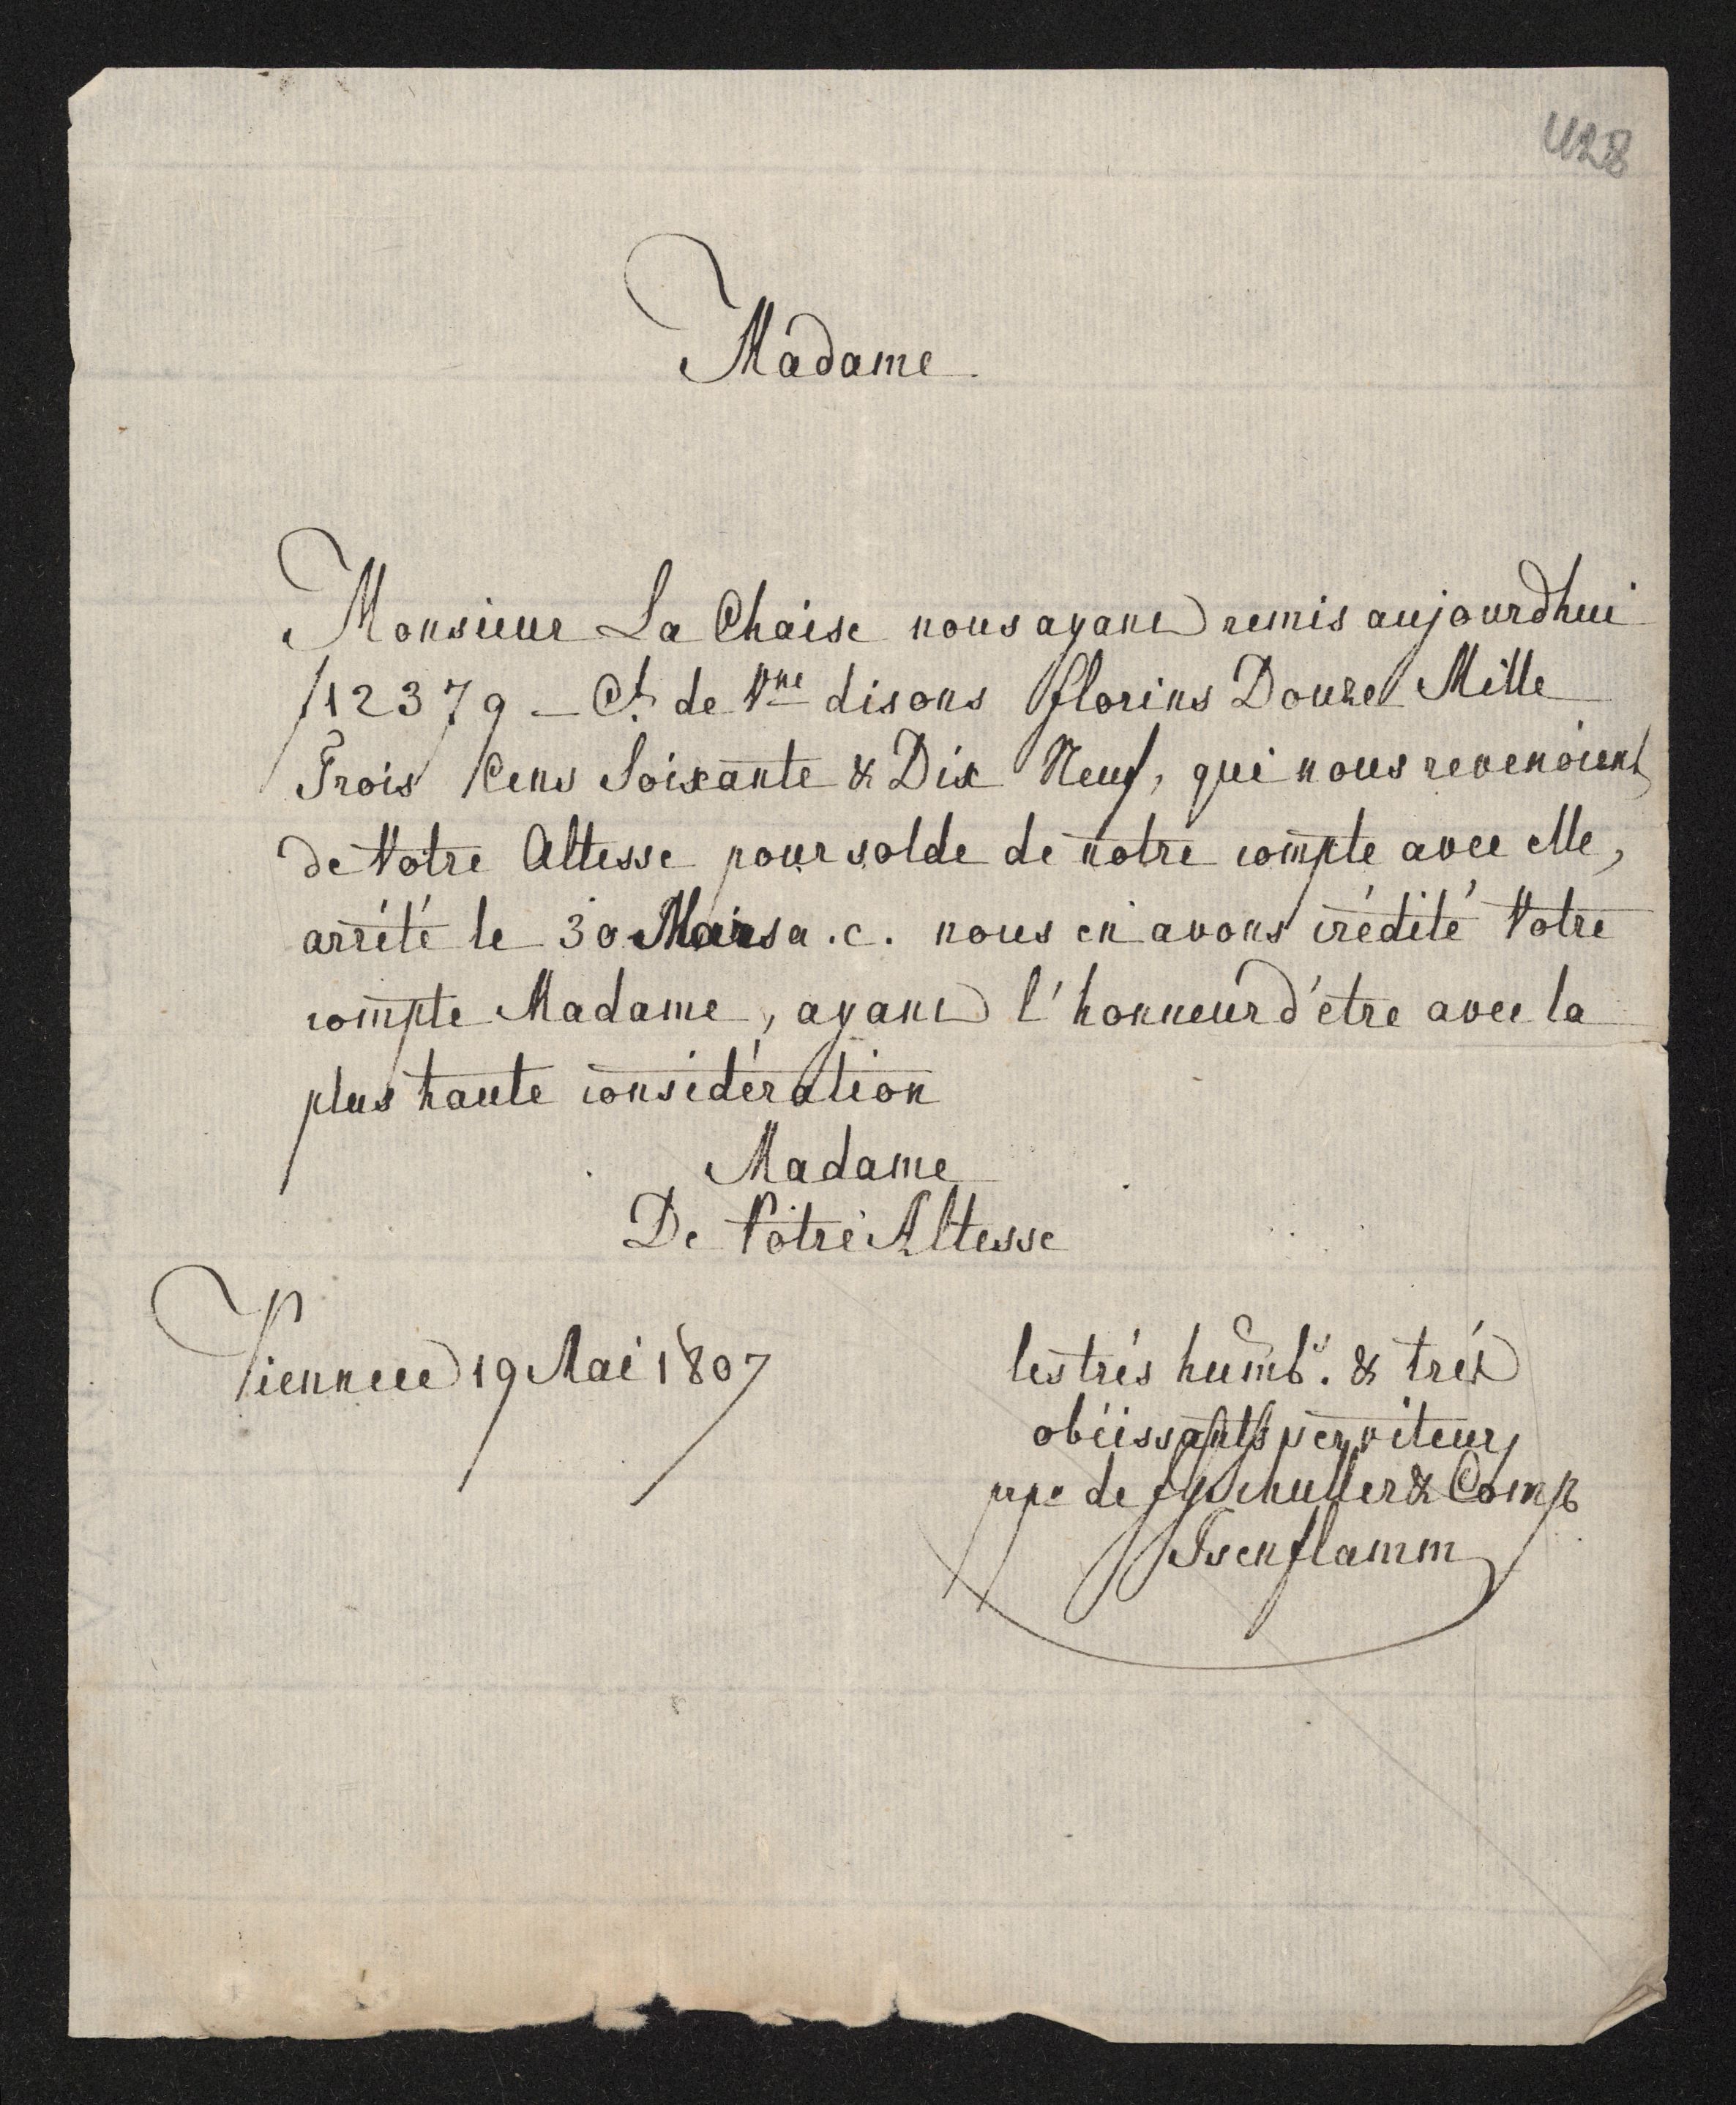 428
Madame
Monsieur La Chaise nous ayant remis aujourdhui
f12379 _ Ct. de Vne disons florins Douze Mille
Trois Cens Soixante & Dix Neuf, qui nous revenoient
de Votre Altesse pour solde de notre compte avec elle,
arrété le 30 Mars a.c. nous en avons crédité Votre
compte Madame, ayant l'honneur d'étre avec la
plus haute considération
Madame
De Votre Altesse
Vienne ce 19 Mai 1807
les trés humbs. & trés
obéissants serviteurs
ppa de Schuller & Comp
Isenflamm